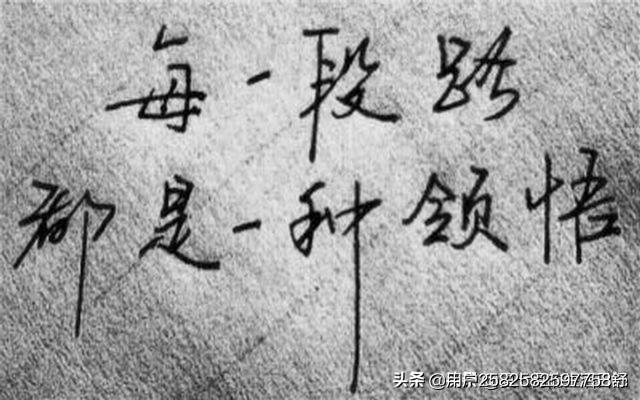 每一段路
都是一种领悟
头条 @用户2582582597758